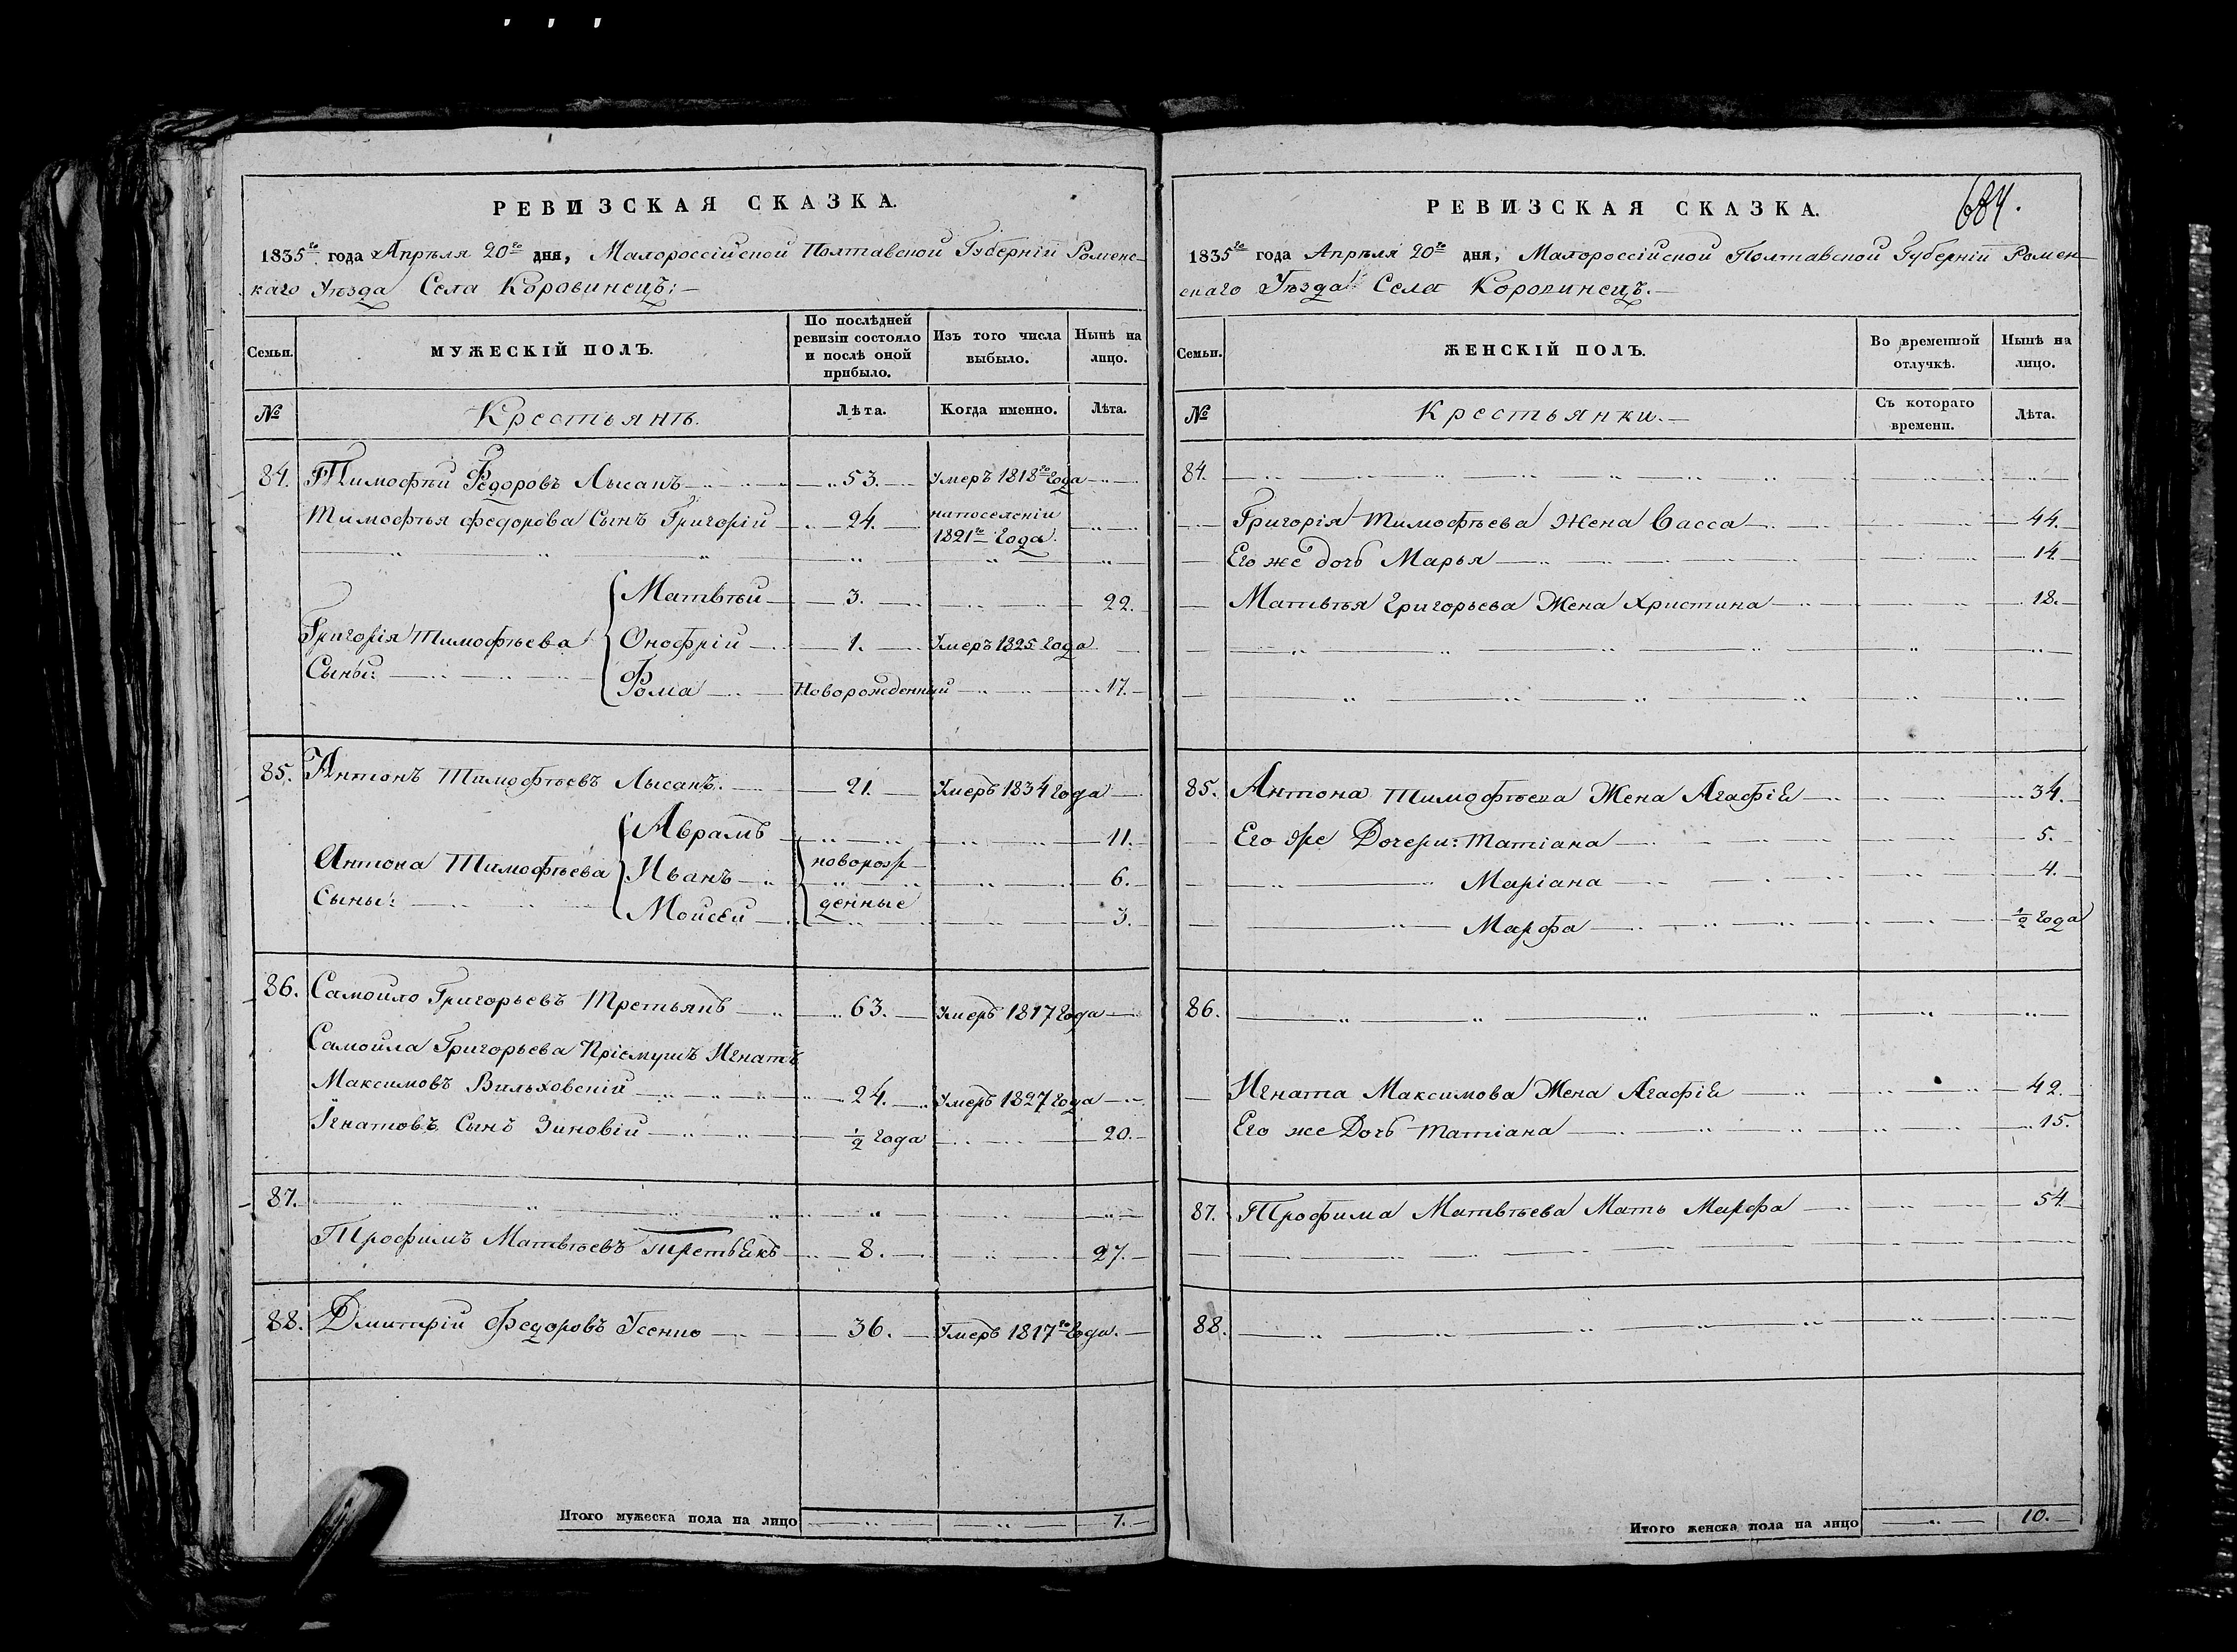 РЕВИЗСКАЯ СКАЗКА.
1835го года Апрѣля 20го дня, Малороссійской Полтавской Губерніи Роменс-
каго Уѣзда Села Коровинецъ:
Семьи.
МУЖЕСКІЙ ПОЛЪ.
По послѣдней ревизіи состояло и послѣ оной прибыло.
Изъ того числа выбыло.
Нынѣ на лицо.
№
Крестьянѣ.
Лѣта.
Когда именно.
Лѣта.
84. Тимофѣй Федоровъ Лысакъ 53. Умеръ 1818го Года
Тимофѣя Федорова Сынъ Григорій 24. на поселеніи
1821го Года.
Матвѣй 3. 22.
Григорія Тимофѣева Онофрій 1. Умеръ 1825 Года
Сыны: Фома Новорожденный 17.
85. Антонъ Тимофѣевъ Лысакъ. 21. Умеръ 1834 Года
Аврамъ 11.
Антона Тимофѣева Иванъ новорож- 6.
Сыны: Мойсей денные 3.
86. Самойло Григорьевъ Третьякъ 63. Умеръ 1817 Года
Самойла Григорьева Пріемышъ Игнатъ
Максимовъ Вильховскій 24. Умеръ 1827 Года
Игнатовъ Сынъ Зиновій ½ Года 20.
87.
Трофимъ Матвѣевъ Третьякъ 8. 27.
88. Дмитрій Федоровъ Усенко 36. Умеръ 1817го Года.
Итого мужеска пола на лицо 7.
684.
РЕВИЗСКАЯ СКАЗКА.
1835го года Апрѣля 20го дня, Малороссійской Полтавской Губерніи Ромен-
скаго Уѣзда Села Коровинецъ.
Семьи.
ЖЕНСКІЙ ПОЛЪ.
Во временной отлучкѣ.
Нынѣ на лицо.
№
Крестьянки.
Съ котораго времени.
Лѣта.
84.
Григорія Тимофѣева Жена Васса 44.
Его же дочь Марья 14.
Матвѣя Григорьева Жена Христина 18.
85. Антона Тимофѣева Жена Агафія 34.
Его же Дочери: Татіана 5.
Маріана 4.
Марфа ½ Года
86.
Игната Максимова Жена Агафія 42.
Его же Дочь Татіана 15.
87. Трофима Матвѣева Мать Марфа 54.
88.
Итого женска пола на лицо 10.